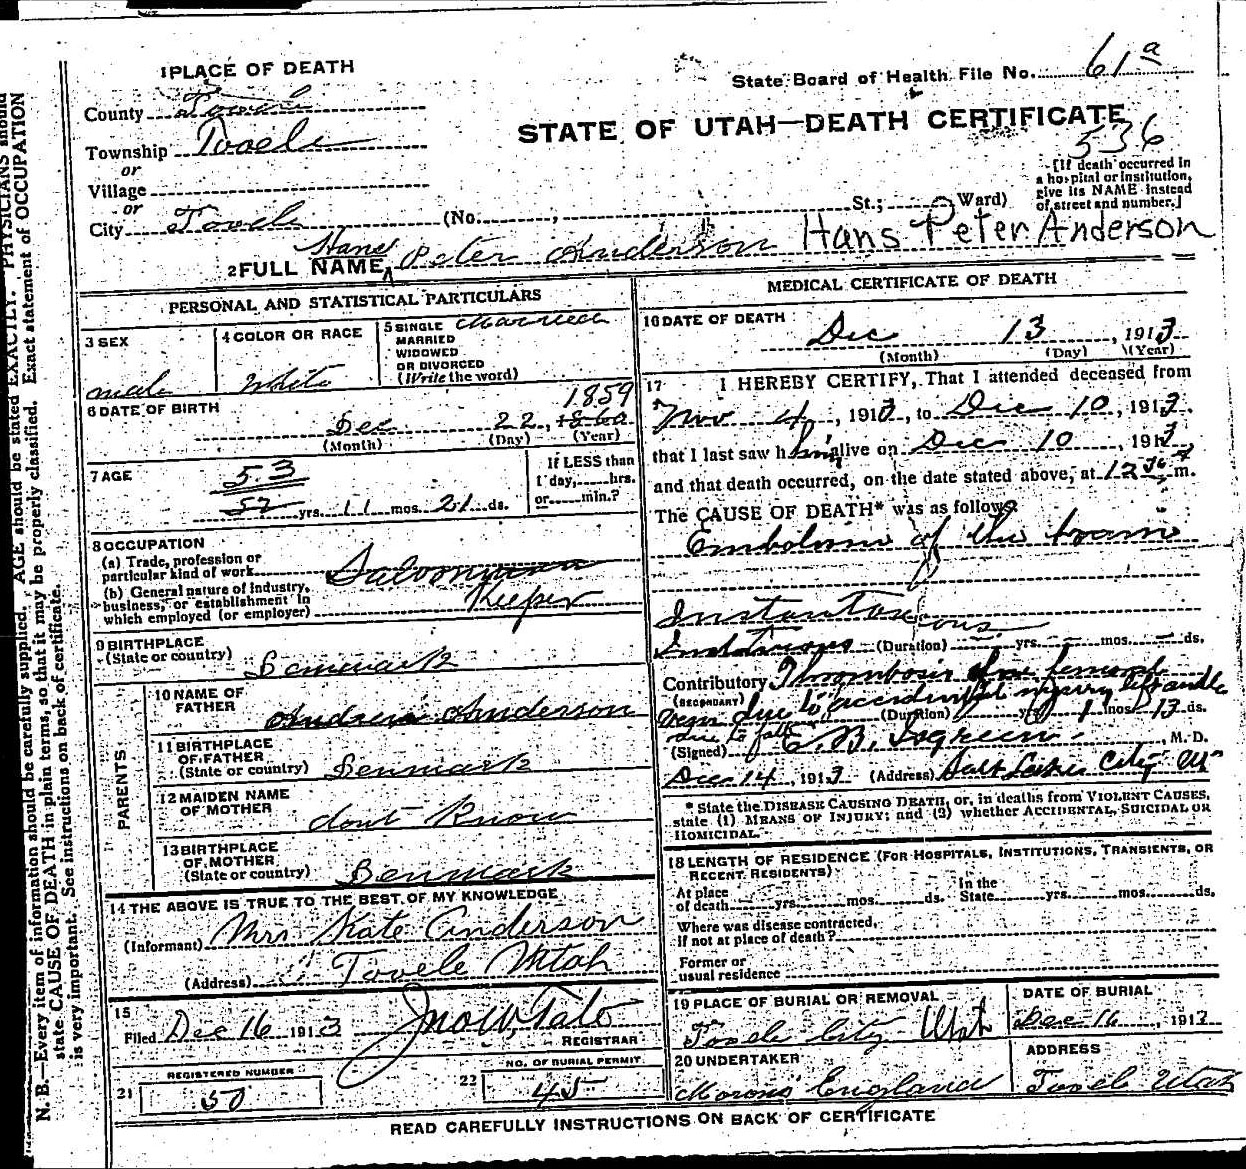 1 PLACE OF DEATH
State Board of Health File No. 61a
County Tooele
STATE OF UTAH—DEATH CERTIFICATE
536
Township Tooele
or
Village
or
City Tooele (No. , St.; Ward)
[If death occurred in
a hospital or institution,
give its NAME instead
of street and number.]
2 FULL NAME Hans Peter Anderson Hans Peter Anderson
PERSONAL AND STATISTICAL PARTICULARS
3 SEX
male
4 COLOR OR RACE
White
5 SINGLE Married
MARRIED
WIDOWED
OR DIVORCED
(Write the word)
6 DATE OF BIRTH
1859
Dec 22, 1860
(Month) (Day) (Year)
7 AGE
53
52 yrs. 11 mos. 21 ds.
If LESS than
1 day, hrs.
or min.?
8 OCCUPATION
(a) Trade, profession or
particular kind of work Saloonman
(b) General nature of industry, Keeper
business, or establishment in
which employed (or employer)
9 BIRTHPLACE
(State or country) Denmark
PARENTS
10 NAME OF
FATHER Andrew Anderson
11 BIRTHPLACE
OF FATHER
(State or country) Denmark
12 MAIDEN NAME
OF MOTHER dont Know
13 BIRTHPLACE
OF MOTHER
(State or country) Denmark
14 THE ABOVE IS TRUE TO THE BEST OF MY KNOWLEDGE
(Informant) Mrs Kate Anderson
(Address) Tooele Utah
15
Filed Dec 16 1913
REGISTRAR
REGISTERED NUMBER
21 50
NO. OF BURIAL PERMIT
22 45
MEDICAL CERTIFICATE OF DEATH
16 DATE OF DEATH
Dec 13, 1913
(Month) (Day) (Year)
17 I HEREBY CERTIFY, That I attended deceased from
Nov 4, 1913, to Dec 10, 1913,
that I last saw him alive on Dec 10, 1913,
and that death occurred, on the date stated above, at 12 30 m.
The CAUSE OF DEATH* was as follows:
Embolism of the
Instantaneous
(Duration) yrs. mos. ds.
Contributory Thrombosis of femoral
(SECONDARY) vein due to accidental injury left
(Duration) yrs. 1 mos. 13 ds.
due to fall
(Signed) E. B. , M. D.
Dec 14, 1913 (Address) Salt Lake City Ut
* State the DISEASE CAUSING DEATH, or, in deaths from VIOLENT CAUSES,
state (1) MEANS OF INJURY; and (2) whether ACCIDENTAL, SUICIDAL OR
HOMICIDAL.
18 LENGTH OF RESIDENCE (FOR HOSPITALS, INSTITUTIONS, TRANSIENTS, OR
RECENT RESIDENTS)
At place
of death yrs. mos. ds.
In the
State yrs. mos. ds.
Where was disease contracted,
if not at place of death?
Former or
usual residence
19 PLACE OF BURIAL OR REMOVAL
Tooele City Utah
DATE OF BURIAL
Dec 16, 1913
20 UNDERTAKER
England
ADDRESS
Tooele Utah
READ CAREFULLY INSTRUCTIONS ON BACK OF CERTIFICATE
N. B.—Every item of information should be carefully supplied. AGE should be stated EXACTLY. PHYSICIANS should
state CAUSE OF DEATH in plain terms, so that it may be properly classified. Exact statement of OCCUPATION
is very important. See instructions on back of certificate.